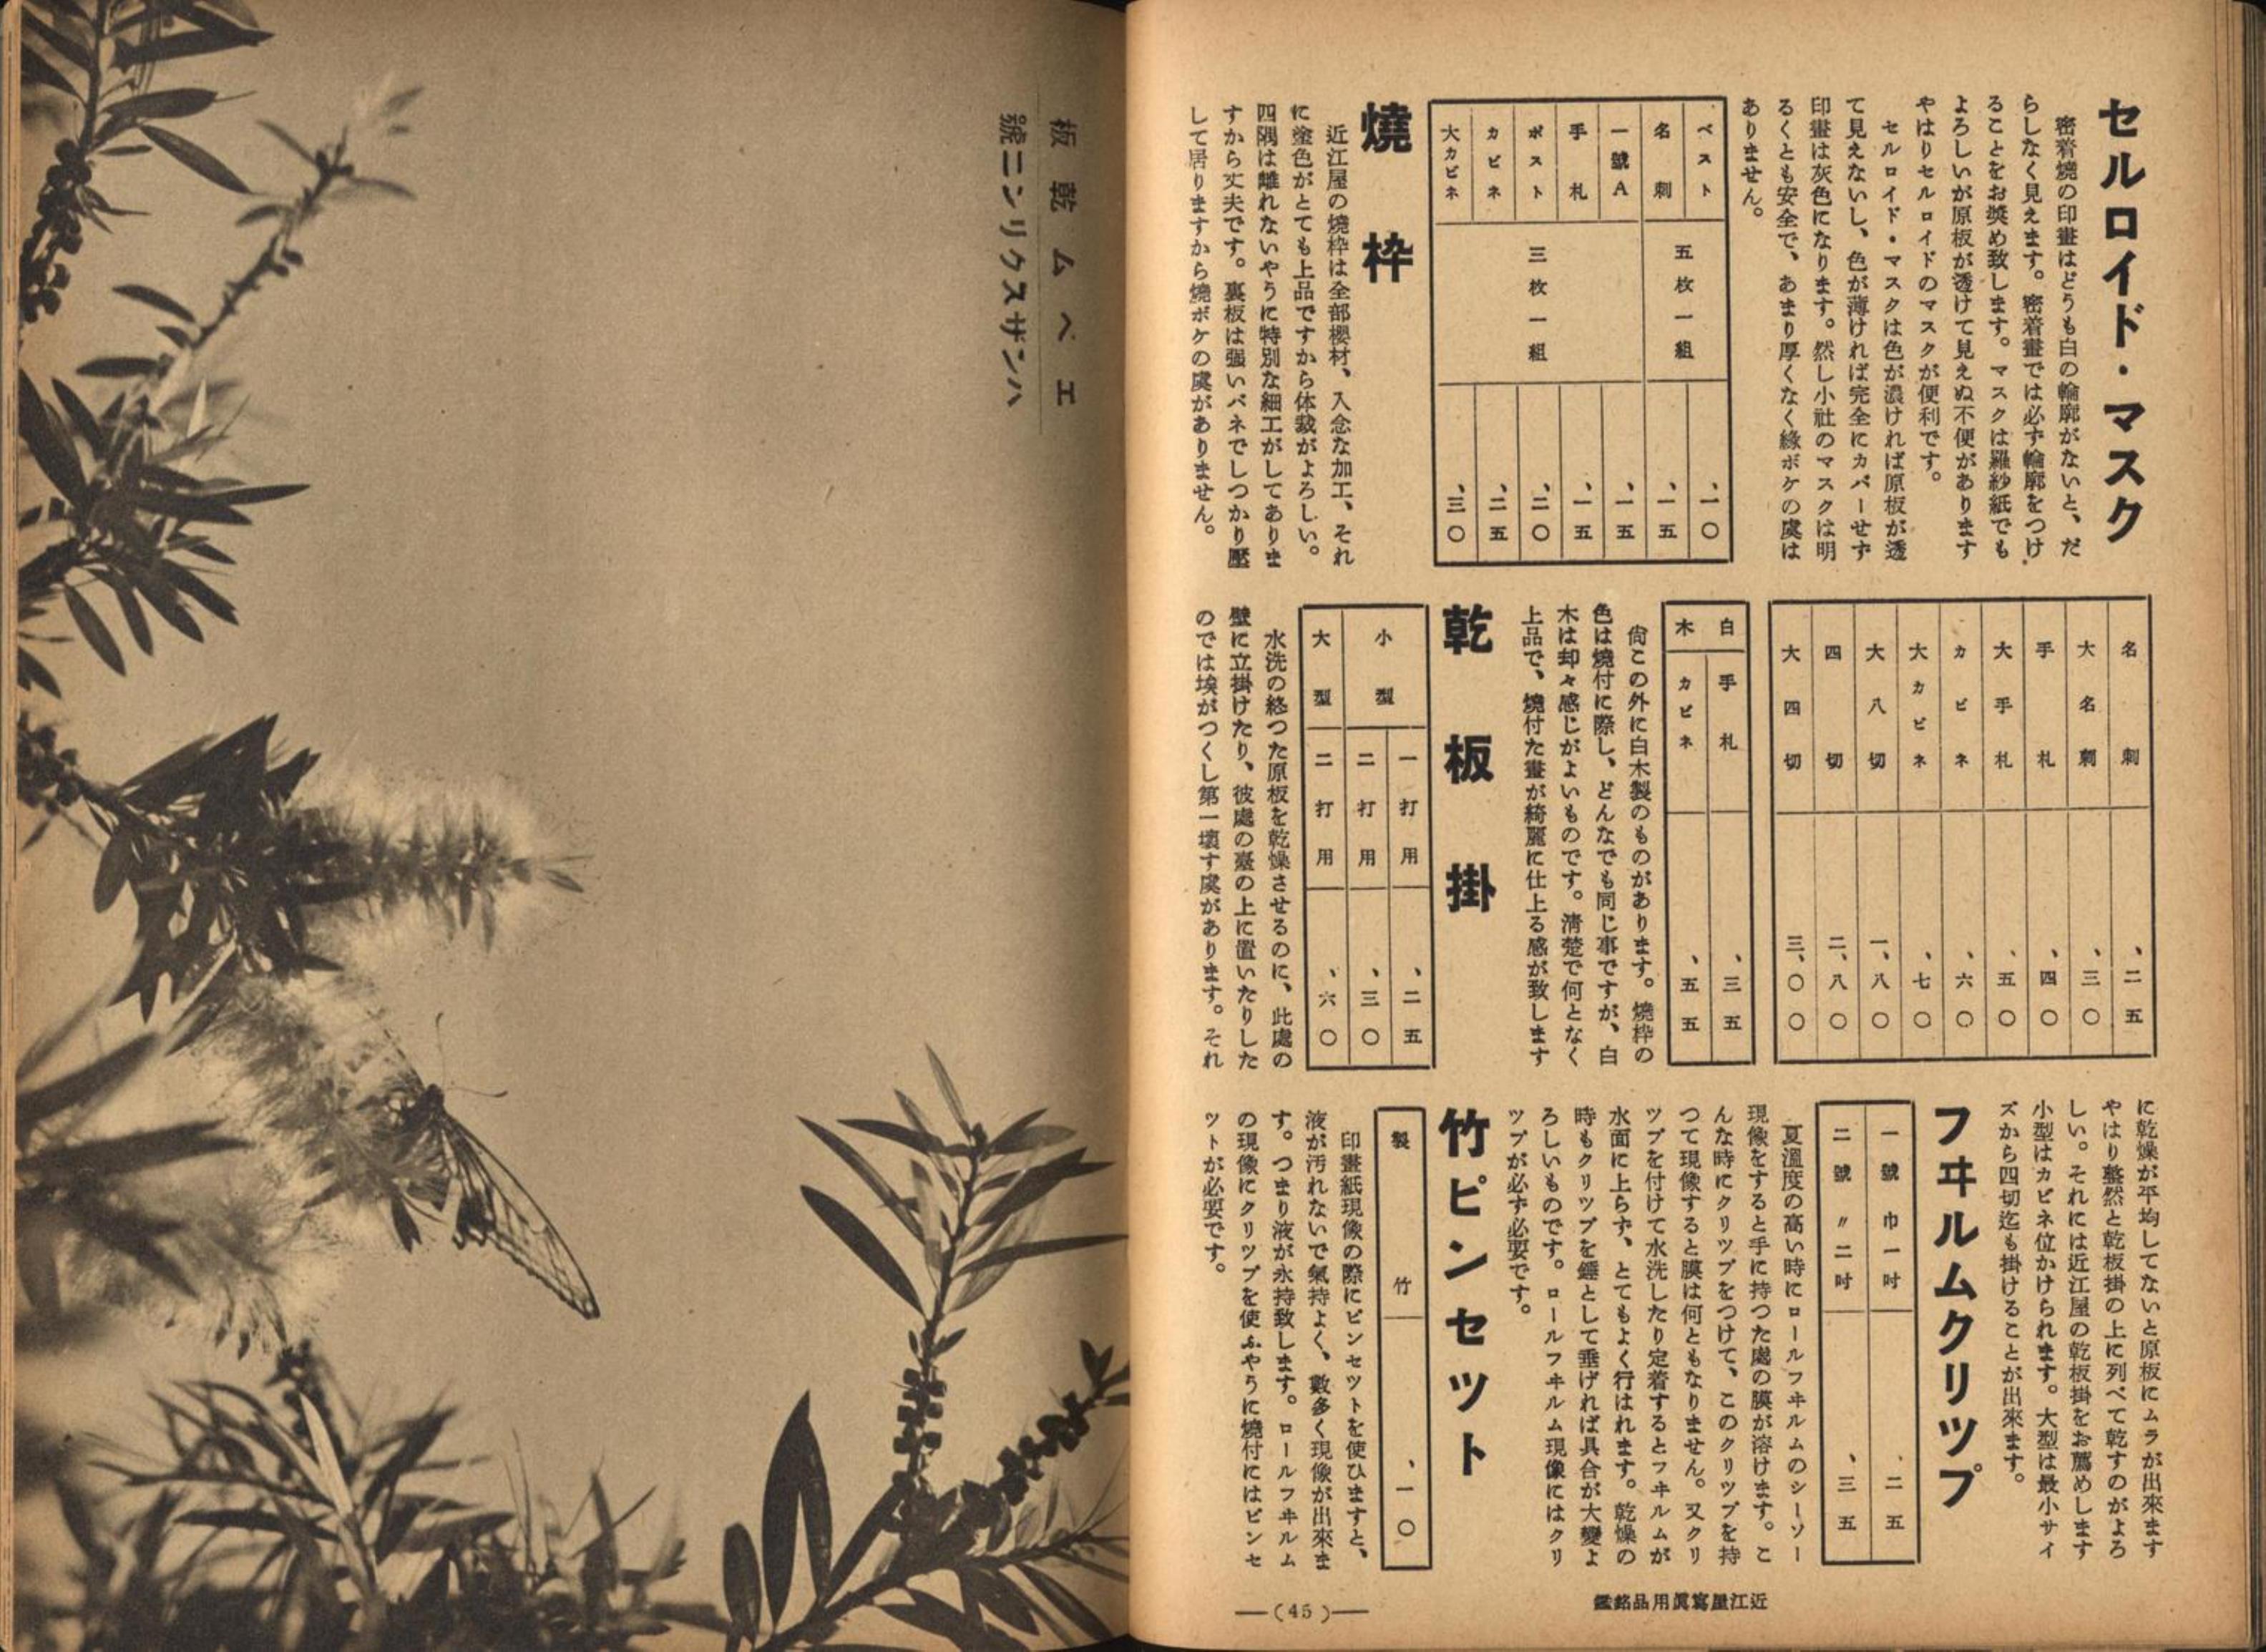 セルロイド・マスク
密着燒の印畫はどうも白の輪廓がないと、だ
らしなく見えます。密着畫では必ず輪廓をつけ
ることをお奬め致します。マスクは羅紗紙でも
よろしいが原板が透けて見えぬ不便があります
やはりセルロイドのマスクが便利です。
セルロイド・マスクは色が濃ければ原板が透
て見えないし、色が薄ければ完全にカバーせず
印畫は灰色になります。然し小社のマスクは明
るくとも安全で、あまり厚くなく緣ボケの虞は
ありません。
ベスト 五枚一組 、一〇
名刺 、一五
一號A 三枚一組 、一五
手札 、一五
ポスト 、二〇
カビネ 、二五
大カビネ 、三〇
燒枠
近江屋の燒枠は全部櫻材、入念な加工、それ
に塗色がとても上品ですから体裁がよろしい。
四隅は離れないやうに特別な細工がしてありま
すから丈夫です。裏板は强いバネでしつかり壓
して居りますから燒ボケの虞がありません。
名刺 、二五
大名刺 、三〇
手札 、四〇
大手札 、五〇
カビネ 、六〇
大カビネ 、七〇
大八切 一、八〇
四切 二、八〇
大四切 三、〇〇
白木 手札 、三五
カビネ 、五五
尙この外に白木製のものがあります。燒枠の
色は燒付に際し、どんなでも同じ事ですが、白
木は却々感じがよいものです。淸楚で何となく
上品で、燒付た畫が綺麗に仕上る感が致します
乾板掛
小型 一打用 、二五
二打用 、三〇
大型 二打用 、六〇
水洗の終つた原板を乾燥させるのに、此處の
壁に立掛けたり、彼處の臺の上に置いたりした
のでは埃がつくし第一壞す虞があります。それ
に乾燥が平均してないと原板にムラが出來ます
やはり整然と乾板掛の上に列べて乾すのがよろ
しい。それには近江屋の乾板掛をお薦めします
小型はカビネ位かけられます。大型は最小サイ
ズから四切迄も掛けることが出來ます。
フヰルムクリツプ
一號 巾一吋 、二五
二號 〃二吋 、三五
夏溫度の高い時にロールフヰルムのシーソー
現像をすると手に持つた處の膜が溶けます。こ
んな時にクリツプをつけて、このクリツプを持
つて現像すると膜は何ともなりません。又クリ
ツプを付けて水洗したり定着するとフヰルムが
水面に上らず、とてもよく行はれます。乾燥の
時もクリツプを錘として垂げれば具合が大變よ
ろしいものです。ロールフヰルム現像にはクリ
ツプが必ず必要です。
竹ピンセツト
竹製 、一〇
印畫紙現像の際にピンセツトを使ひますと、
液が汚れないで氣持よく、數多く現像が出來ま
す。つまり液が永持致します。ロールフヰルム
の現像にクリツプを使ふやうに燒付にはピンセ
ツトが必要です。
近江屋寫眞用品銘鑑
―(45)―
エヘム乾板
ハンザスクリン二號